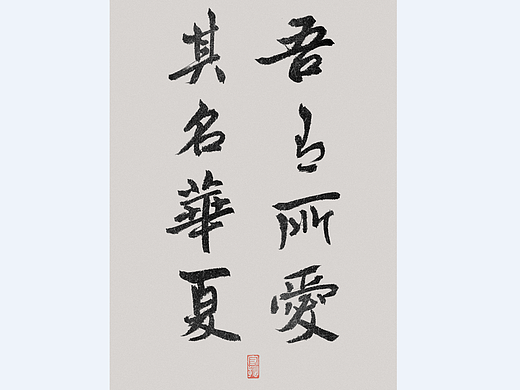 吾有所愛
其名華夏